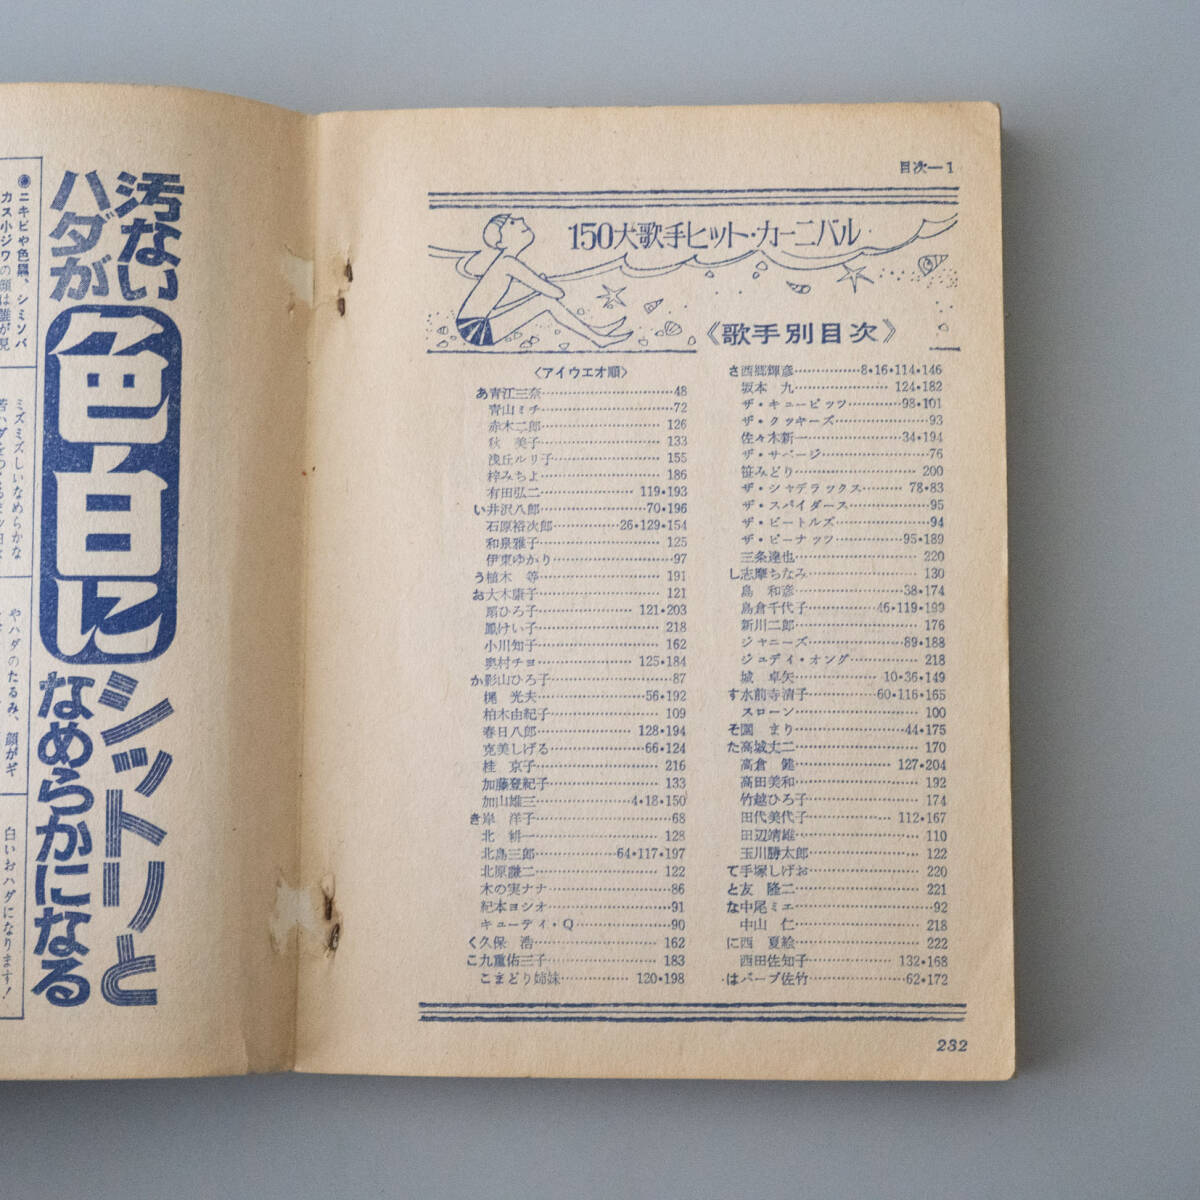 目次—1
150大歌手ヒット・カーニバル
《歌手別目次》
〈アイウエオ順〉
あ青江三奈…………48
青山ミチ…………72
赤木二郎…………126
秋　美子…………133
浅丘ルリ子…………155
梓みちよ…………186
有田弘二…………119•193
い井沢八郎…………70•196
石原裕次郎…………26•129•154
和泉雅子…………125
伊東ゆかり…………97
う植木　等…………191
お大木康子…………121
扇ひろ子…………121•203
鳳けい子…………218
小川知子…………162
奥村チヨ…………125•184
か影山ひろ子…………87
梶　光夫…………56•192
柏木由紀子…………109
春日八郎…………128•194
克美しげる…………66•124
桂　京子…………216
加藤登紀子…………133
加山雄三…………4•18•150
き岸　洋子…………68
北　耕一…………128
北島三郎…………64•117•197
北原謙二…………122
木の実ナナ…………86
紀本ヨシオ…………91
キューティ・Q…………90
く久保　浩…………162
こ九重佑三子…………183
こまどり姉妹…………120•198
さ西郷輝彦…………8•16•114•146
坂本　九…………124•182
ザ・キューピッツ…………98•101
ザ・クッキーズ…………93
佐々木新一…………34•194
ザ・サベージ…………76
笹みどり…………200
ザ・シャデラックス…………78•83
ザ・スパイダース…………95
ザ・ビートルズ…………94
ザ・ピーナッツ…………95•189
三条達也…………220
し志摩ちなみ…………130
島　和彦…………38•174
島倉千代子…………46•119•199
新川二郎…………176
ジャニーズ…………89•188
ジュディ・オング…………218
城　卓矢…………10•36•149
す水前寺清子…………60•116•165
スローン…………100
そ園　まり…………44•175
た高城丈二…………170
高倉　健…………127•204
高田美和…………192
竹越ひろ子…………174
田代美代子…………112•167
田辺靖雄…………110
玉川勝太郎…………122
て手塚しげお…………220
と友　隆二…………221
な中尾ミエ…………92
中山　仁…………218
に西　夏絵…………222
西田佐知子…………132•168
はバーブ佐竹…………62•172
232
汚ない
ハダが
色白に
シットリと
なめらかになる
●ニキビや色黒、シミソバ
カス小ジワの顔は誰が見
ミズミズしいなめらかな
やハダのたるみ、顔がギ
白いおハダになります！